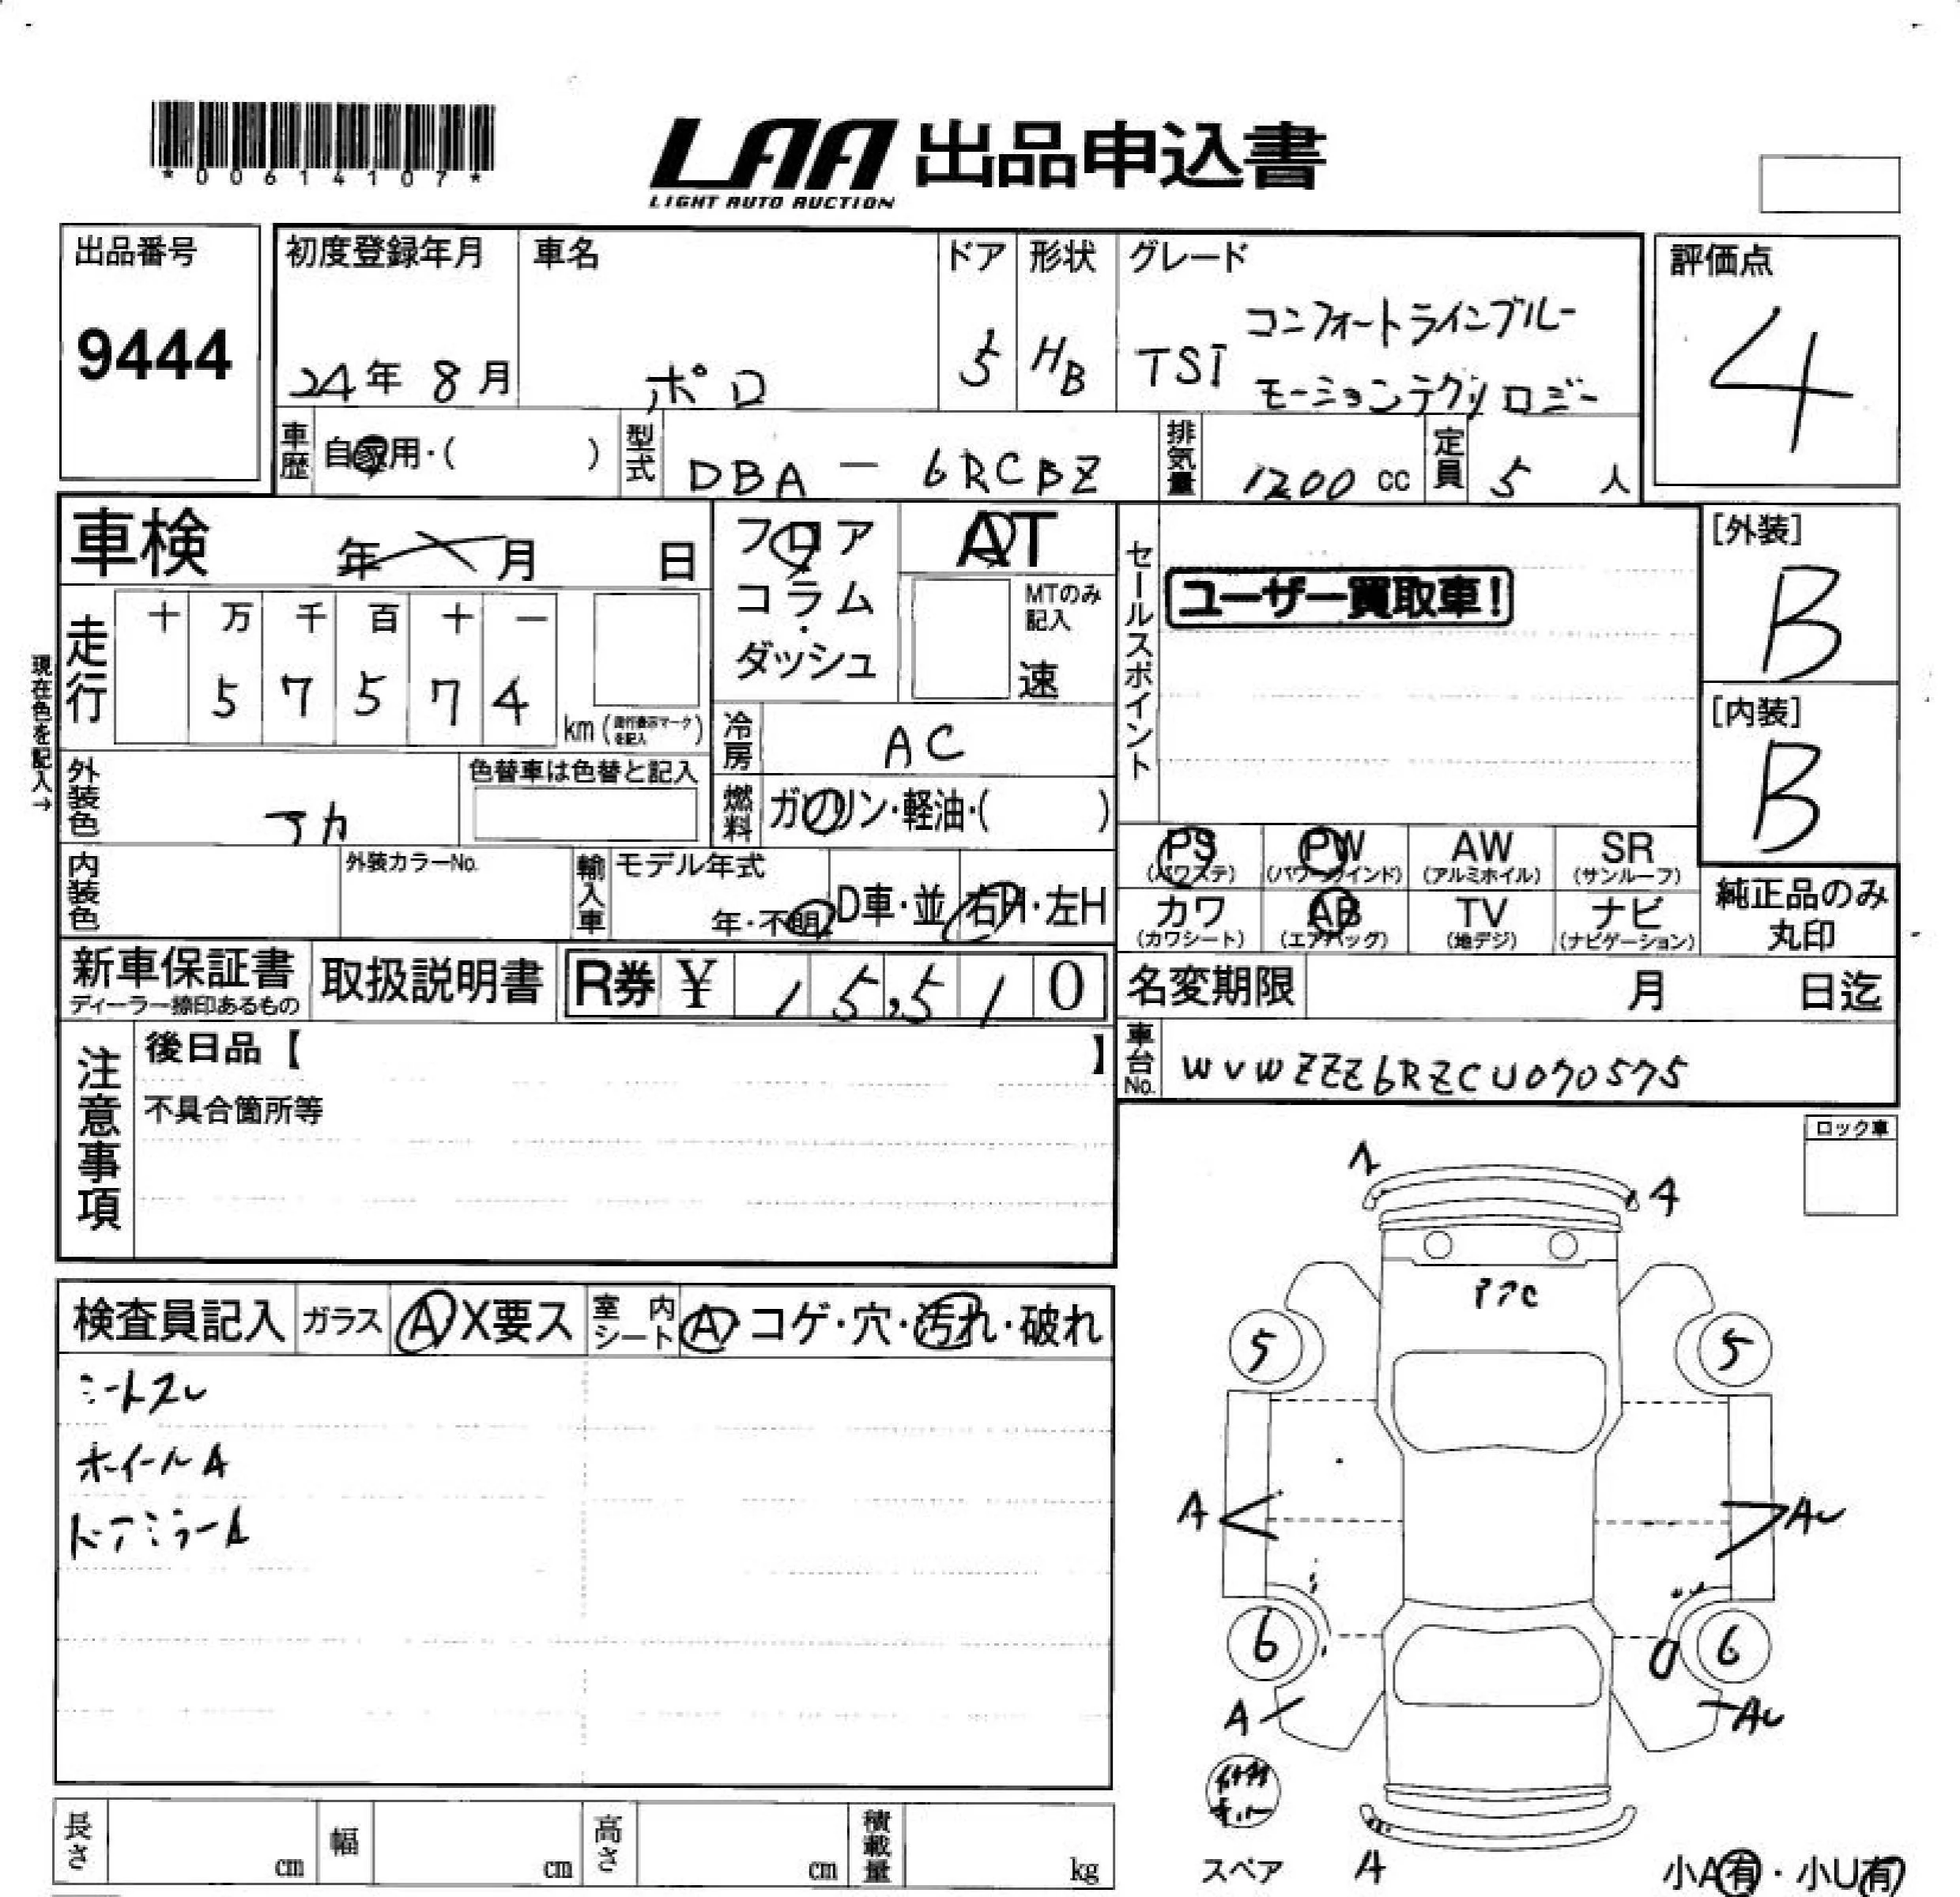 *00614107*
LAA 出品申込書
LIGHT AUTO AUCTION
出品番号
9444
初度登録年月
24年 8月
車名
ポロ
ドア
5
形状
HB
グレード
TSI コンフォートラインブルー
モーションテクノロジー
評価点
4
車歴
自家用・( )
型式
DBA - 6RCBZ
排気量
1200 cc
定員
5 人
車検
年 月 日
フロア
コラム
・
ダッシュ
AT
MTのみ
記入
速
セールスポイント
ユーザー買取車!
[外装]
B
[内装]
B
現在色を記入→
走行
十 万 千 百 十 一
5 7 5 7 4
km (走行表示マークを記入)
冷房
AC
外装色
アカ
色替車は色替と記入
燃料
ガソリン・軽油・( )
内装色
外装カラーNo.
輸入車
モデル年式
年・不明
D車・並
右H・左H
PS
(パワステ)
PW
(パワーウインド)
AW
(アルミホイル)
SR
(サンルーフ)
カワ
(カワシート)
AB
(エアバッグ)
TV
(地デジ)
ナビ
(ナビゲーション)
純正品のみ
丸印
新車保証書
ディーラー捺印あるもの
取扱説明書
R券 ¥ 15,510
名変期限
月 日迄
車台No.
WVWZZZ6RZCU070575
注意事項
後日品【 】
不具合箇所等
ロック車
検査員記入
ガラス
A X要ス
室内
シート
A コゲ・穴・汚れ・破れ
シートスレ
ホイールA
ドアミラーA
4
5 5
A AU
6 6
A AU
スペア
A
小A有・小U有
長さ
cm
幅
cm
高さ
cm
積載量
kg